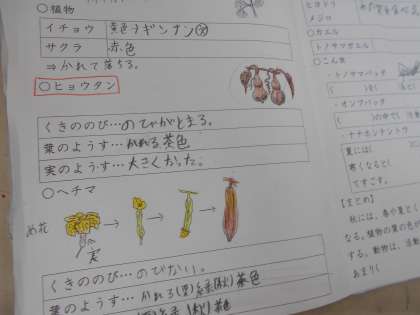 ○植物
イチョウ 黄色 ギンナン
サクラ 赤色
⇒かれて落ちる。
○ヒョウタン
くきののび…のびがとまる。
葉のようす…かれる茶色
実のようす…大きくなった。
○ヘチマ
め花
→ → →
実
くきののび…のびない。
葉のようす…かれる(夏)緑(秋)茶色
(秋)茶色
ヒヨドリ
メジロ
○カエル
トノサマガエル
○こん虫
・トノサマバッタ
・オンブバッタ
・ナナホシテントウ
夏には(
寒くなると(
てすごす。
【まとめ】
秋には、春や夏とく
なる。植物の葉の色が
する。動物は、活動
あまり(